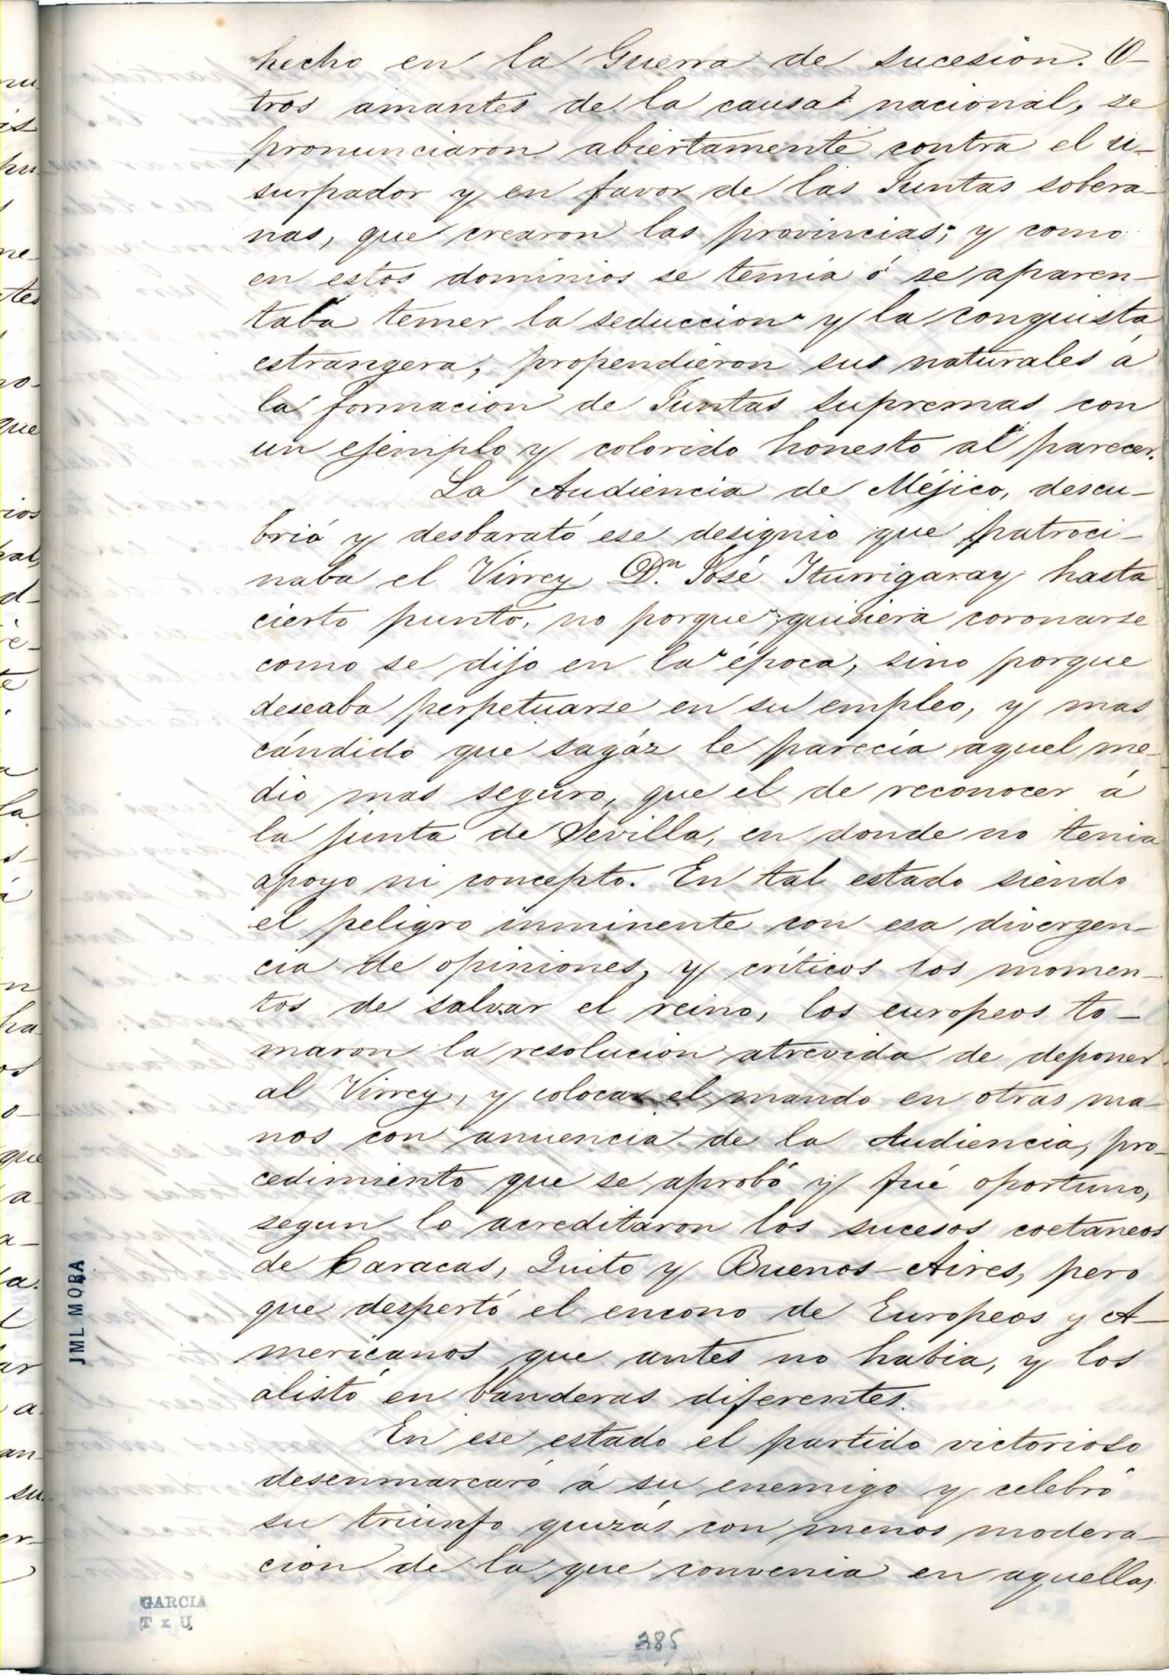 hecho en la Guerra de sucesion. O-
tros amantes de la causa nacional, se
pronunciaron abiertamente contra el u-
surpador y en favor de las Juntas sobera-
nas, que crearon las provincias; y como
en estos dominios se temia ó se aparen-
taba temer la seduccion y la conquista
estrangera, propendieron sus naturales á
la formacion de Juntas supremas con
un ejemplo y colorido honesto al parecer.
La Audiencia de Méjico, descu-
brió y desbarató ese designio que patroci-
naba el Virrey Dn. José Iturrigaray hasta
cierto punto, no porque quisiera coronarse
como se dijo en la época, sino porque
deseaba perpetuarse en su empleo, y mas
cándido que sagáz le parecia aquel me-
dio mas seguro, que el de reconocer á
la junta de Sevilla, en donde no tenia
apoyo ni concepto. En tal estado siendo
el peligro inminente con esa divergen-
cia de opiniones, y criticos los momen-
tos de salvar el reino, los europeos to-
maron la resolucion atrevida de deponer
al Virrey, y colocar el mando en otras ma-
nos con anuencia de la Audiencia, pro-
cedimiento que se aprobó y fué oportuno,
segun lo acreditaron los sucesos coetaneos
de Caracas, Quito y Buenos-Aires, pero
que despertó el encono de Europeos y A-
mericanos que antes no habia, y los
alistó en banderas diferentes.
En ese estado el partido victorioso
desenmarcaró á su enemigo y celebró
su triunfo quizás con menos modera-
cion de la que convenia en aquellas
JML MORA
GARCIA
T x U
385